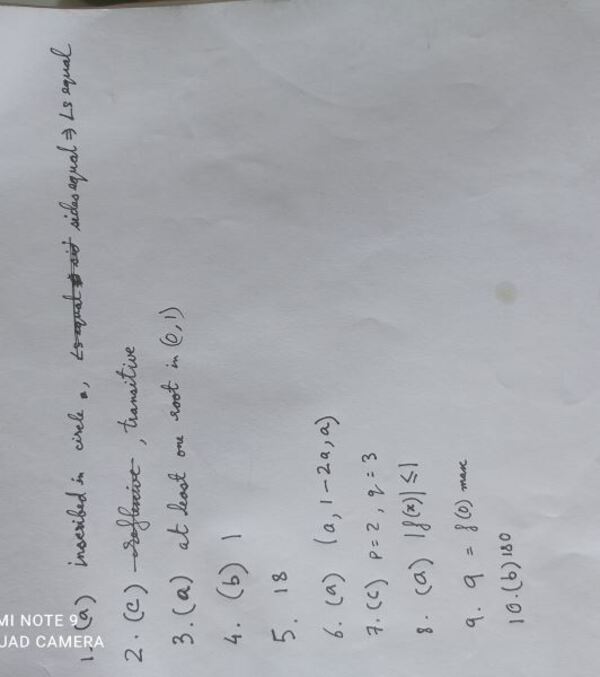 MI NOTE 9
UAD CAMERA
1. (a) inscribed in circle, sides equal ⇒ ∠s equal
2. (c) reflexive, transitive
3. (a) at least one root in (0, 1)
4. (b) 1
5. 18
6. (a) (a, 1-2a, a)
7. (c) p=2, q=3
8. (a) |f(x)| ≤ 1
9. 9 = f(0) max
10. (b) 180